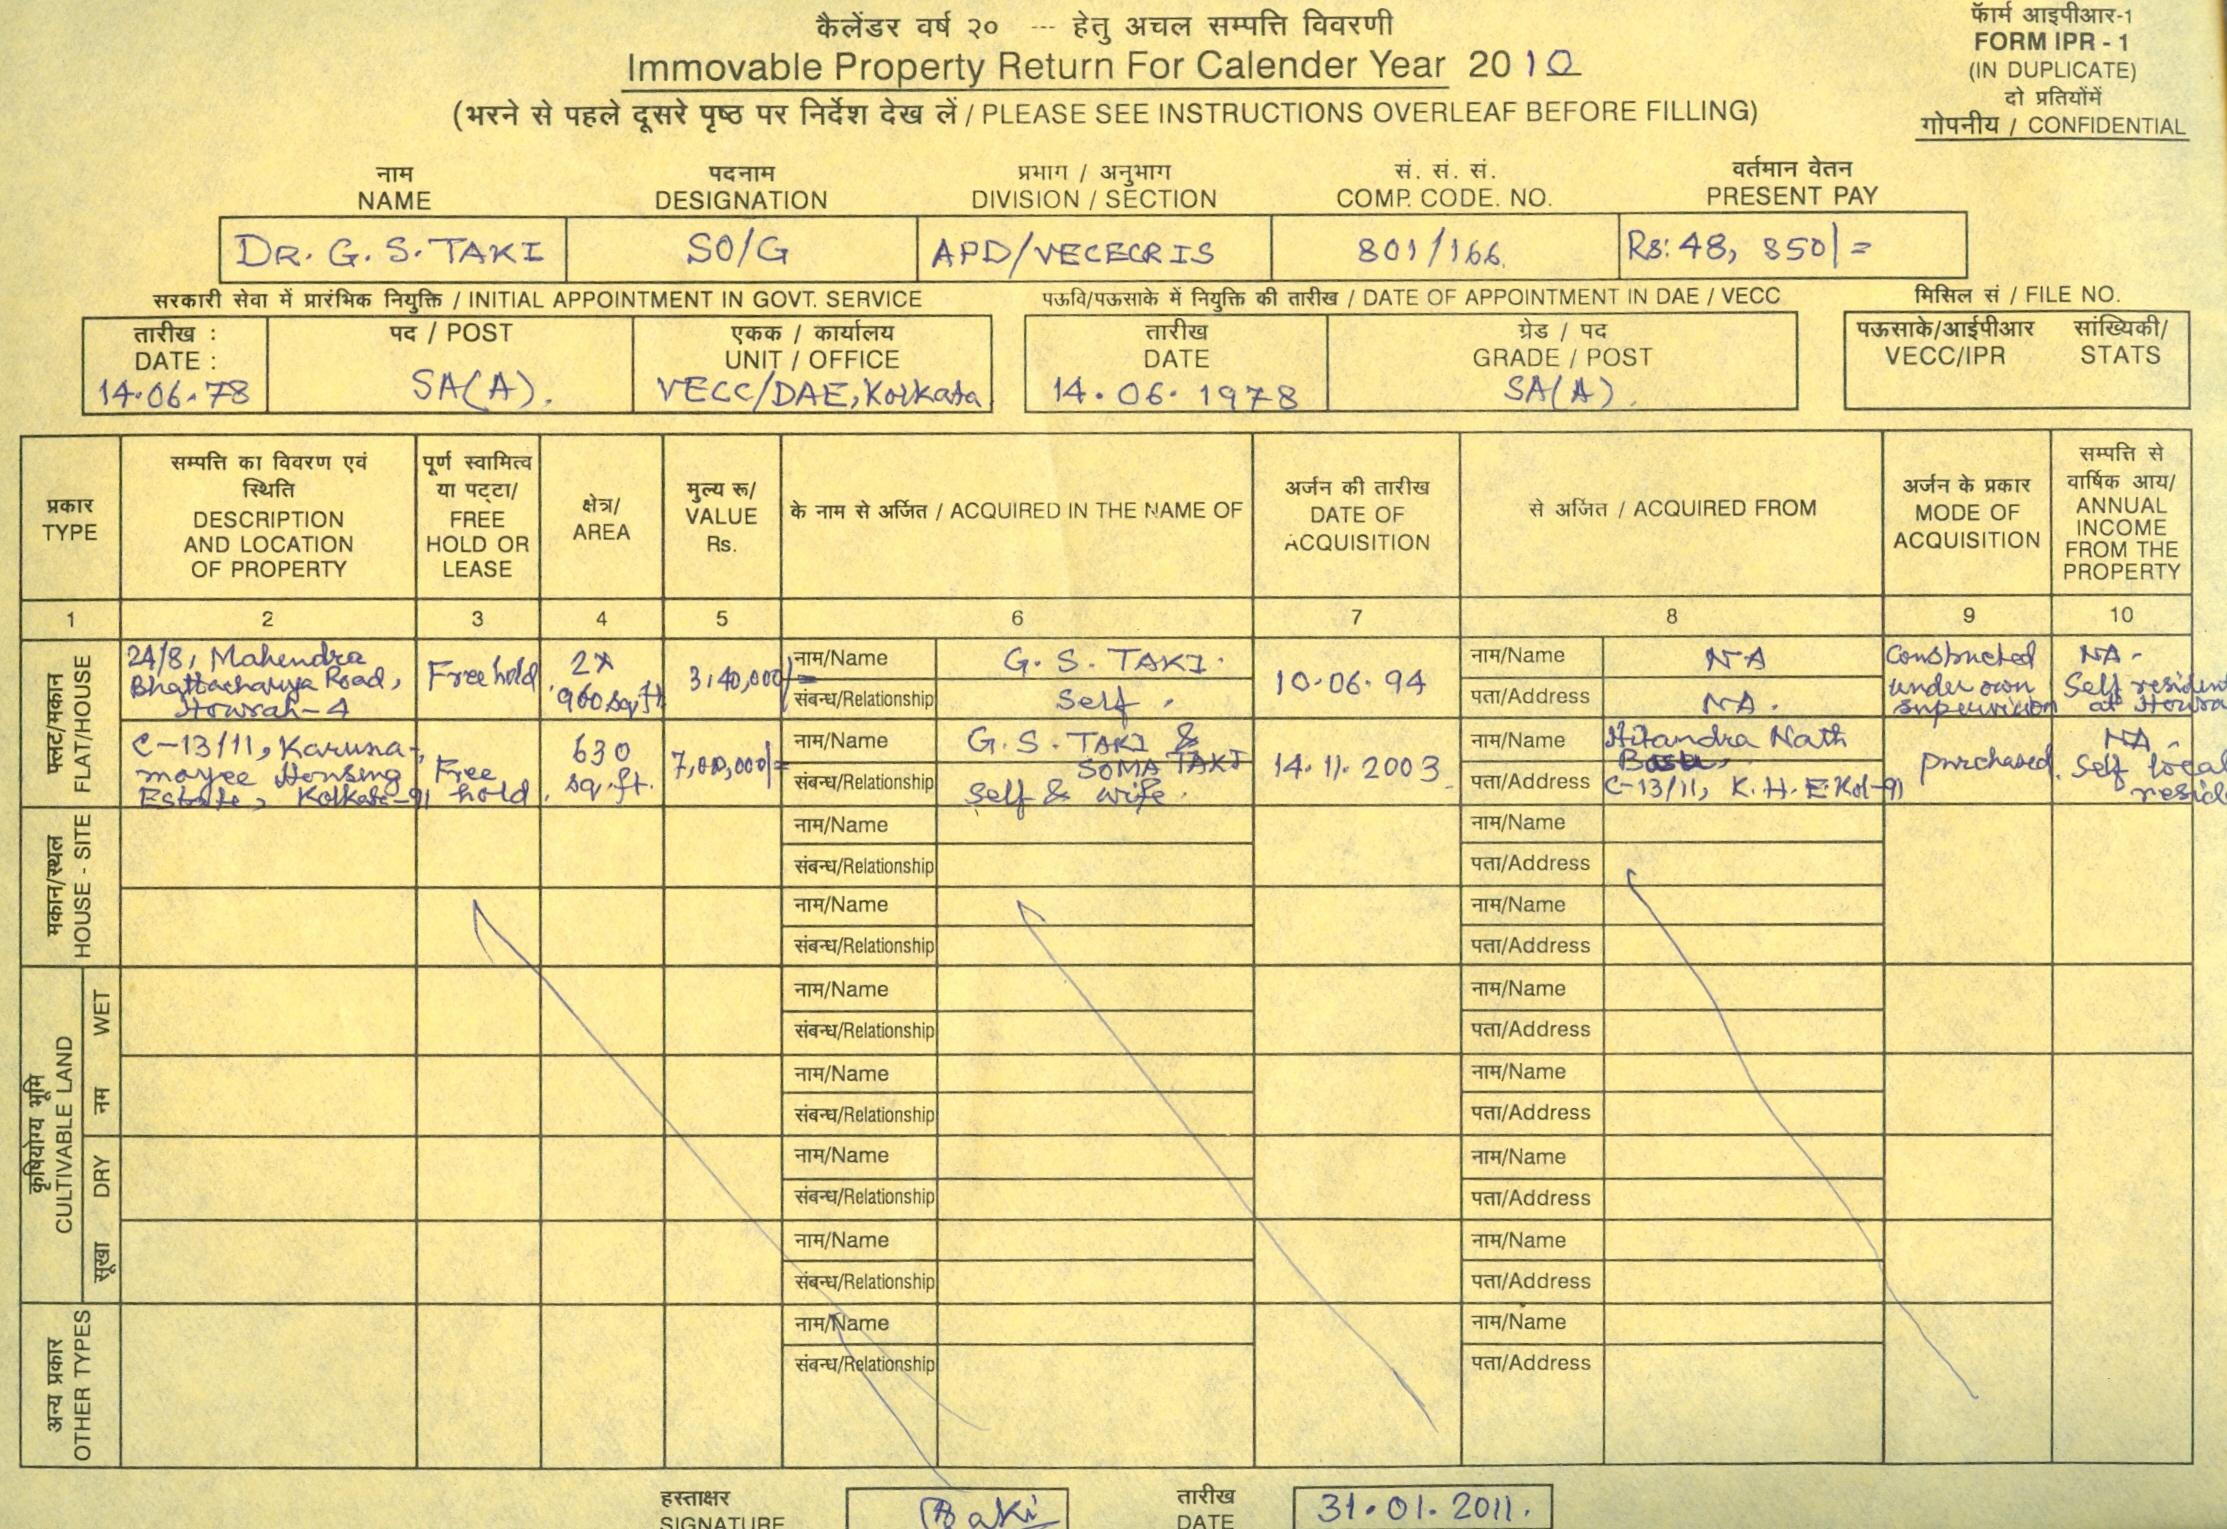 कैलेंडर वर्ष २० --- हेतु अचल सम्पत्ति विवरणी
Immovable Property Return For Calender Year 2010
(भरने से पहले दूसरे पृष्ठ पर निर्देश देख लें / PLEASE SEE INSTRUCTIONS OVERLEAF BEFORE FILLING)
फॅार्म आइपीआर-1
FORM IPR - 1
(IN DUPLICATE)
दो प्रतियोंमें
गोपनीय / CONFIDENTIAL
नाम पदनाम प्रभाग / अनुभाग सं. सं. सं. वर्तमान वेतन
NAME DESIGNATION DIVISION / SECTION COMP. CODE. NO. PRESENT PAY
DR. G. S. TAKI SO/G APD/VECECRIS 801/166 Rs: 48, 850/=
सरकारी सेवा में प्रारंभिक नियुक्ति / INITIAL APPOINTMENT IN GOVT. SERVICE पऊवि/पऊसाके में नियुक्ति की तारीख / DATE OF APPOINTMENT IN DAE / VECC मिसिल सं / FILE NO.
तारीख : पद / POST एकक / कार्यालय तारीख ग्रेड / पद पऊसाके/आईपीआर सांख्यिकी/
DATE : UNIT / OFFICE DATE GRADE / POST VECC/IPR STATS
14.06.78 SA(A). VECC/DAE, Kolkata 14.06.1978 SA(A).
प्रकार
TYPE
सम्पत्ति का विवरण एवं
स्थिति
DESCRIPTION
AND LOCATION
OF PROPERTY
पूर्ण स्वामित्व
या पट्टा/
FREE
HOLD OR
LEASE
क्षेत्र/
AREA
मुल्य रू/
VALUE
Rs.
के नाम से अर्जित / ACQUIRED IN THE NAME OF
अर्जन की तारीख
DATE OF
ACQUISITION
से अर्जित / ACQUIRED FROM
अर्जन के प्रकार
MODE OF
ACQUISITION
सम्पत्ति से
वार्षिक आय/
ANNUAL
INCOME
FROM THE
PROPERTY
1 2 3 4 5 6 7 8 9 10
फ्लैट/मकान
FLAT/HOUSE
24/8, Mahendra
Bhattacharya Road,
Howrah-4
Free hold
2x
960 sq.ft
3,40,000/=
नाम/Name G. S. TAKI.
संबन्ध/Relationship Self.
10.06.94
नाम/Name NA
पता/Address NA.
Constructed
under own
supervision
NA-
Self resident
at Howra
C-13/11, Karuna-
moyee Housing
Estate, Kolkata-91
Free
hold.
630
sq.ft.
7,00,000/=
नाम/Name G. S. TAKI &
SOMA TAKI
संबन्ध/Relationship Self & wife.
14.11.2003
नाम/Name Hitandra Nath
Basu,
पता/Address C-13/11, K.H.E. Kol-91
purchased.
NA-
Self local
resid
मकान/स्थल
HOUSE - SITE
नाम/Name नाम/Name
संबन्ध/Relationship पता/Address
नाम/Name नाम/Name
संबन्ध/Relationship पता/Address
कृषियोग्य भूमि
CULTIVABLE LAND
नम WET
नाम/Name नाम/Name
संबन्ध/Relationship पता/Address
नाम/Name नाम/Name
संबन्ध/Relationship पता/Address
सूखा DRY
नाम/Name नाम/Name
संबन्ध/Relationship पता/Address
नाम/Name नाम/Name
संबन्ध/Relationship पता/Address
अन्य प्रकार
OTHER TYPES
नाम/Name नाम/Name
संबन्ध/Relationship पता/Address
हस्ताक्षर तारीख
SIGNATURE Taki DATE 31.01.2011.